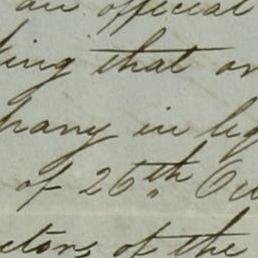 an official
king that on
pany in liq
of 26th Oc
ctors of the